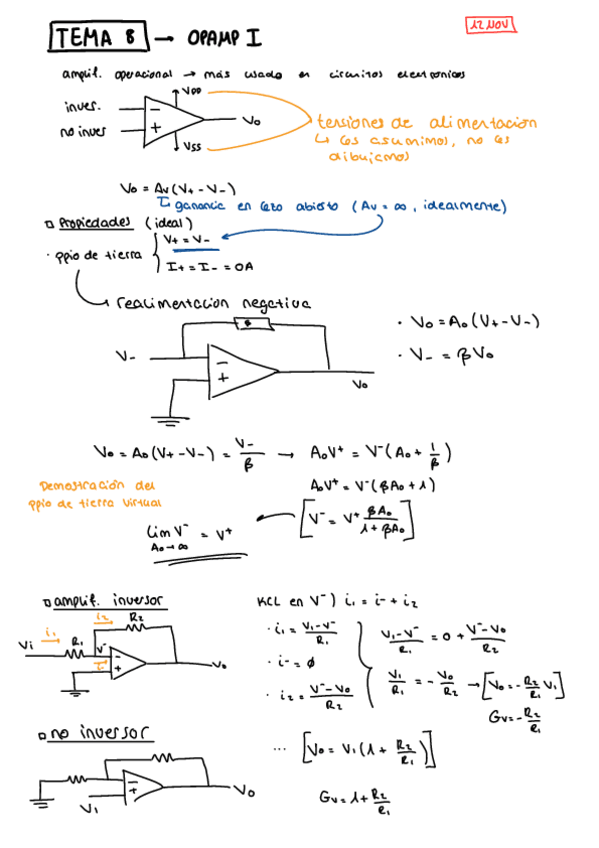 12 NOV
TEMA 8 → OPAMP I
amplif. operacional → más usado en circuitos electronicos
inver. − VDD
no inver + Vo
VSS
tensiones de alimentacion
↳ las asumimos, no las
dibujamos
Vo = Av (V+ - V-)
ganancia en lazo abierto (Av = ∞, idealmente)
Propiedades (ideal)
· ppio de tierra { V+ = V-
I+ = I- = 0A
realimentacion negativa
V- − + Vo
· Vo = Ao (V+ - V-)
· V- = βVo
Vo = Ao (V+ - V-) = V-/β → AoV⁺ = V⁻(Ao + 1/β)
Demostración del
ppio de tierra virtual
AoV⁺ = V⁻(βAo + 1)
[V⁻ = V⁺ βAo/(1 + βAo)]
lim V⁻ = V⁺
Ao→∞
amplif. inversor
i1 i2 R2
Vi R1 V⁻ i- − + Vo
KCL en V⁻) i1 = i- + i2
· i1 = (V1 - V⁻)/R1
· i- = ø
· i2 = (V⁻ - Vo)/R2
(V1 - V⁻)/R1 = 0 + (V⁻ - Vo)/R2
V1/R1 = - Vo/R2 → [Vo = - R2/R1 V1]
Gv = - R2/R1
no inversor
− + V1 Vo
... [Vo = V1 (1 + R2/R1)]
Gv = 1 + R2/R1